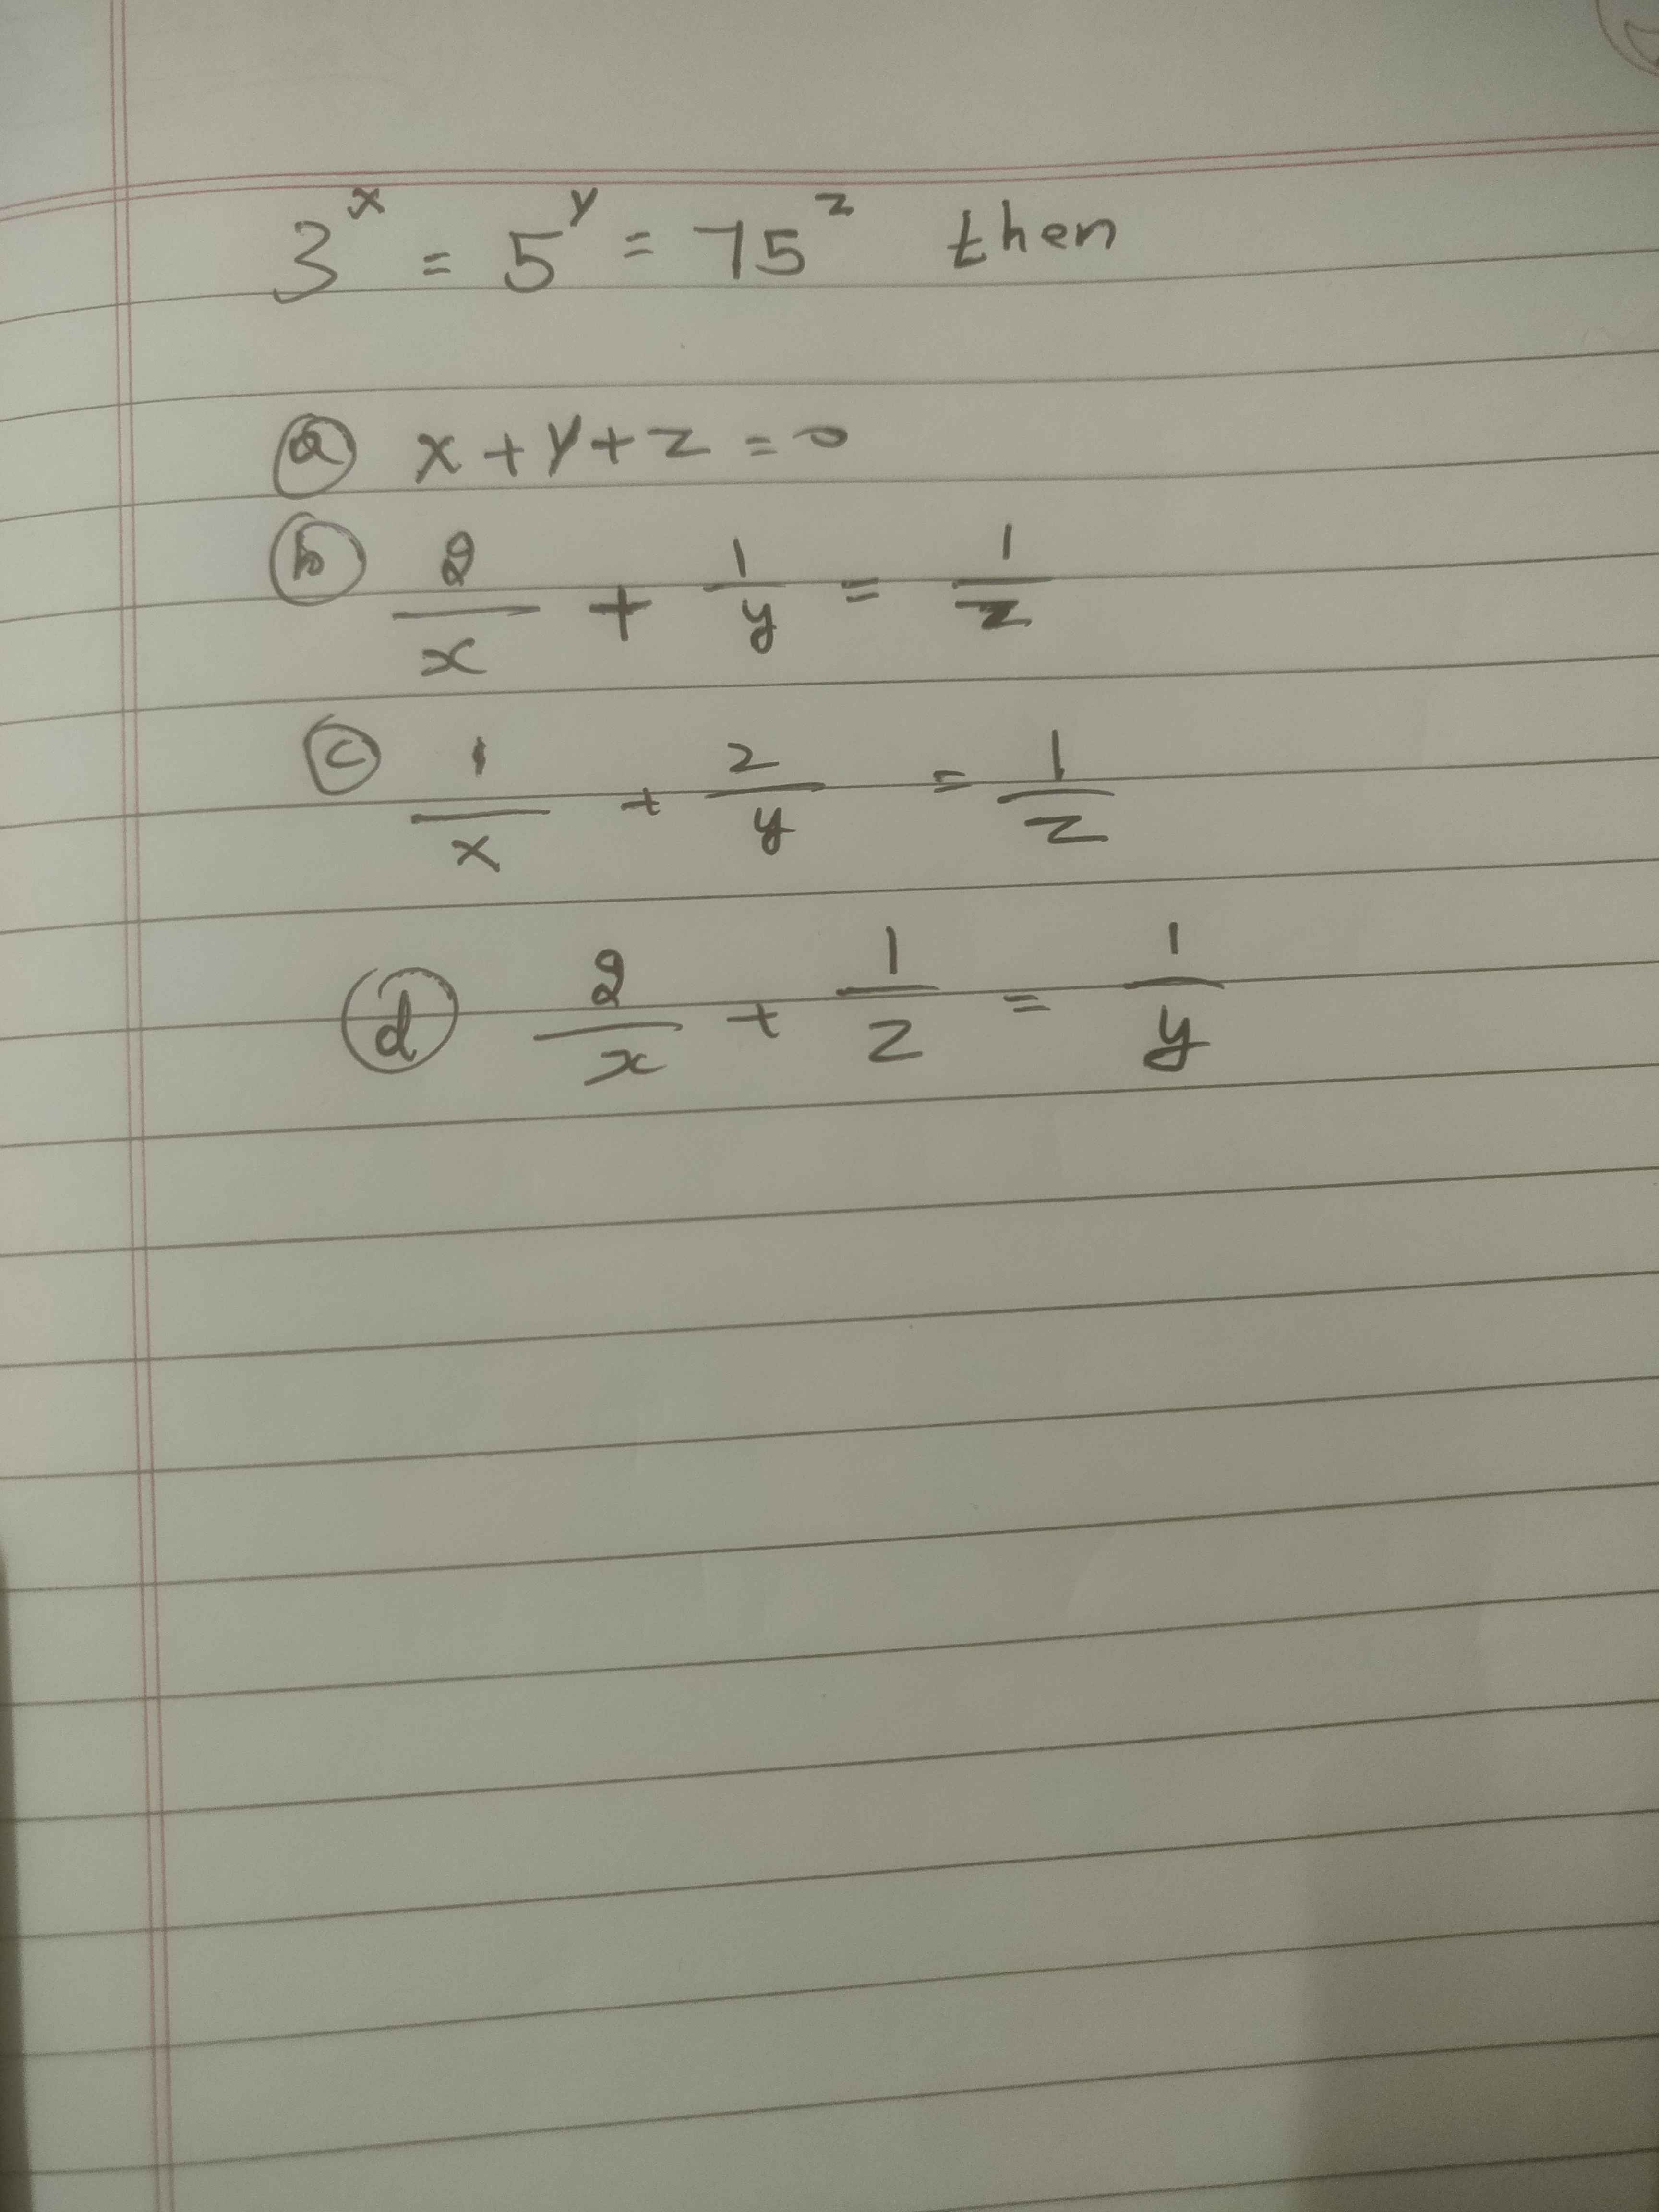 3^x = 5^y = 75^z then
(a) x + y + z = 0
(b) 2/x + 1/y = 1/z
(c) 1/x + 2/y = 1/z
(d) 2/x + 1/z = 1/y